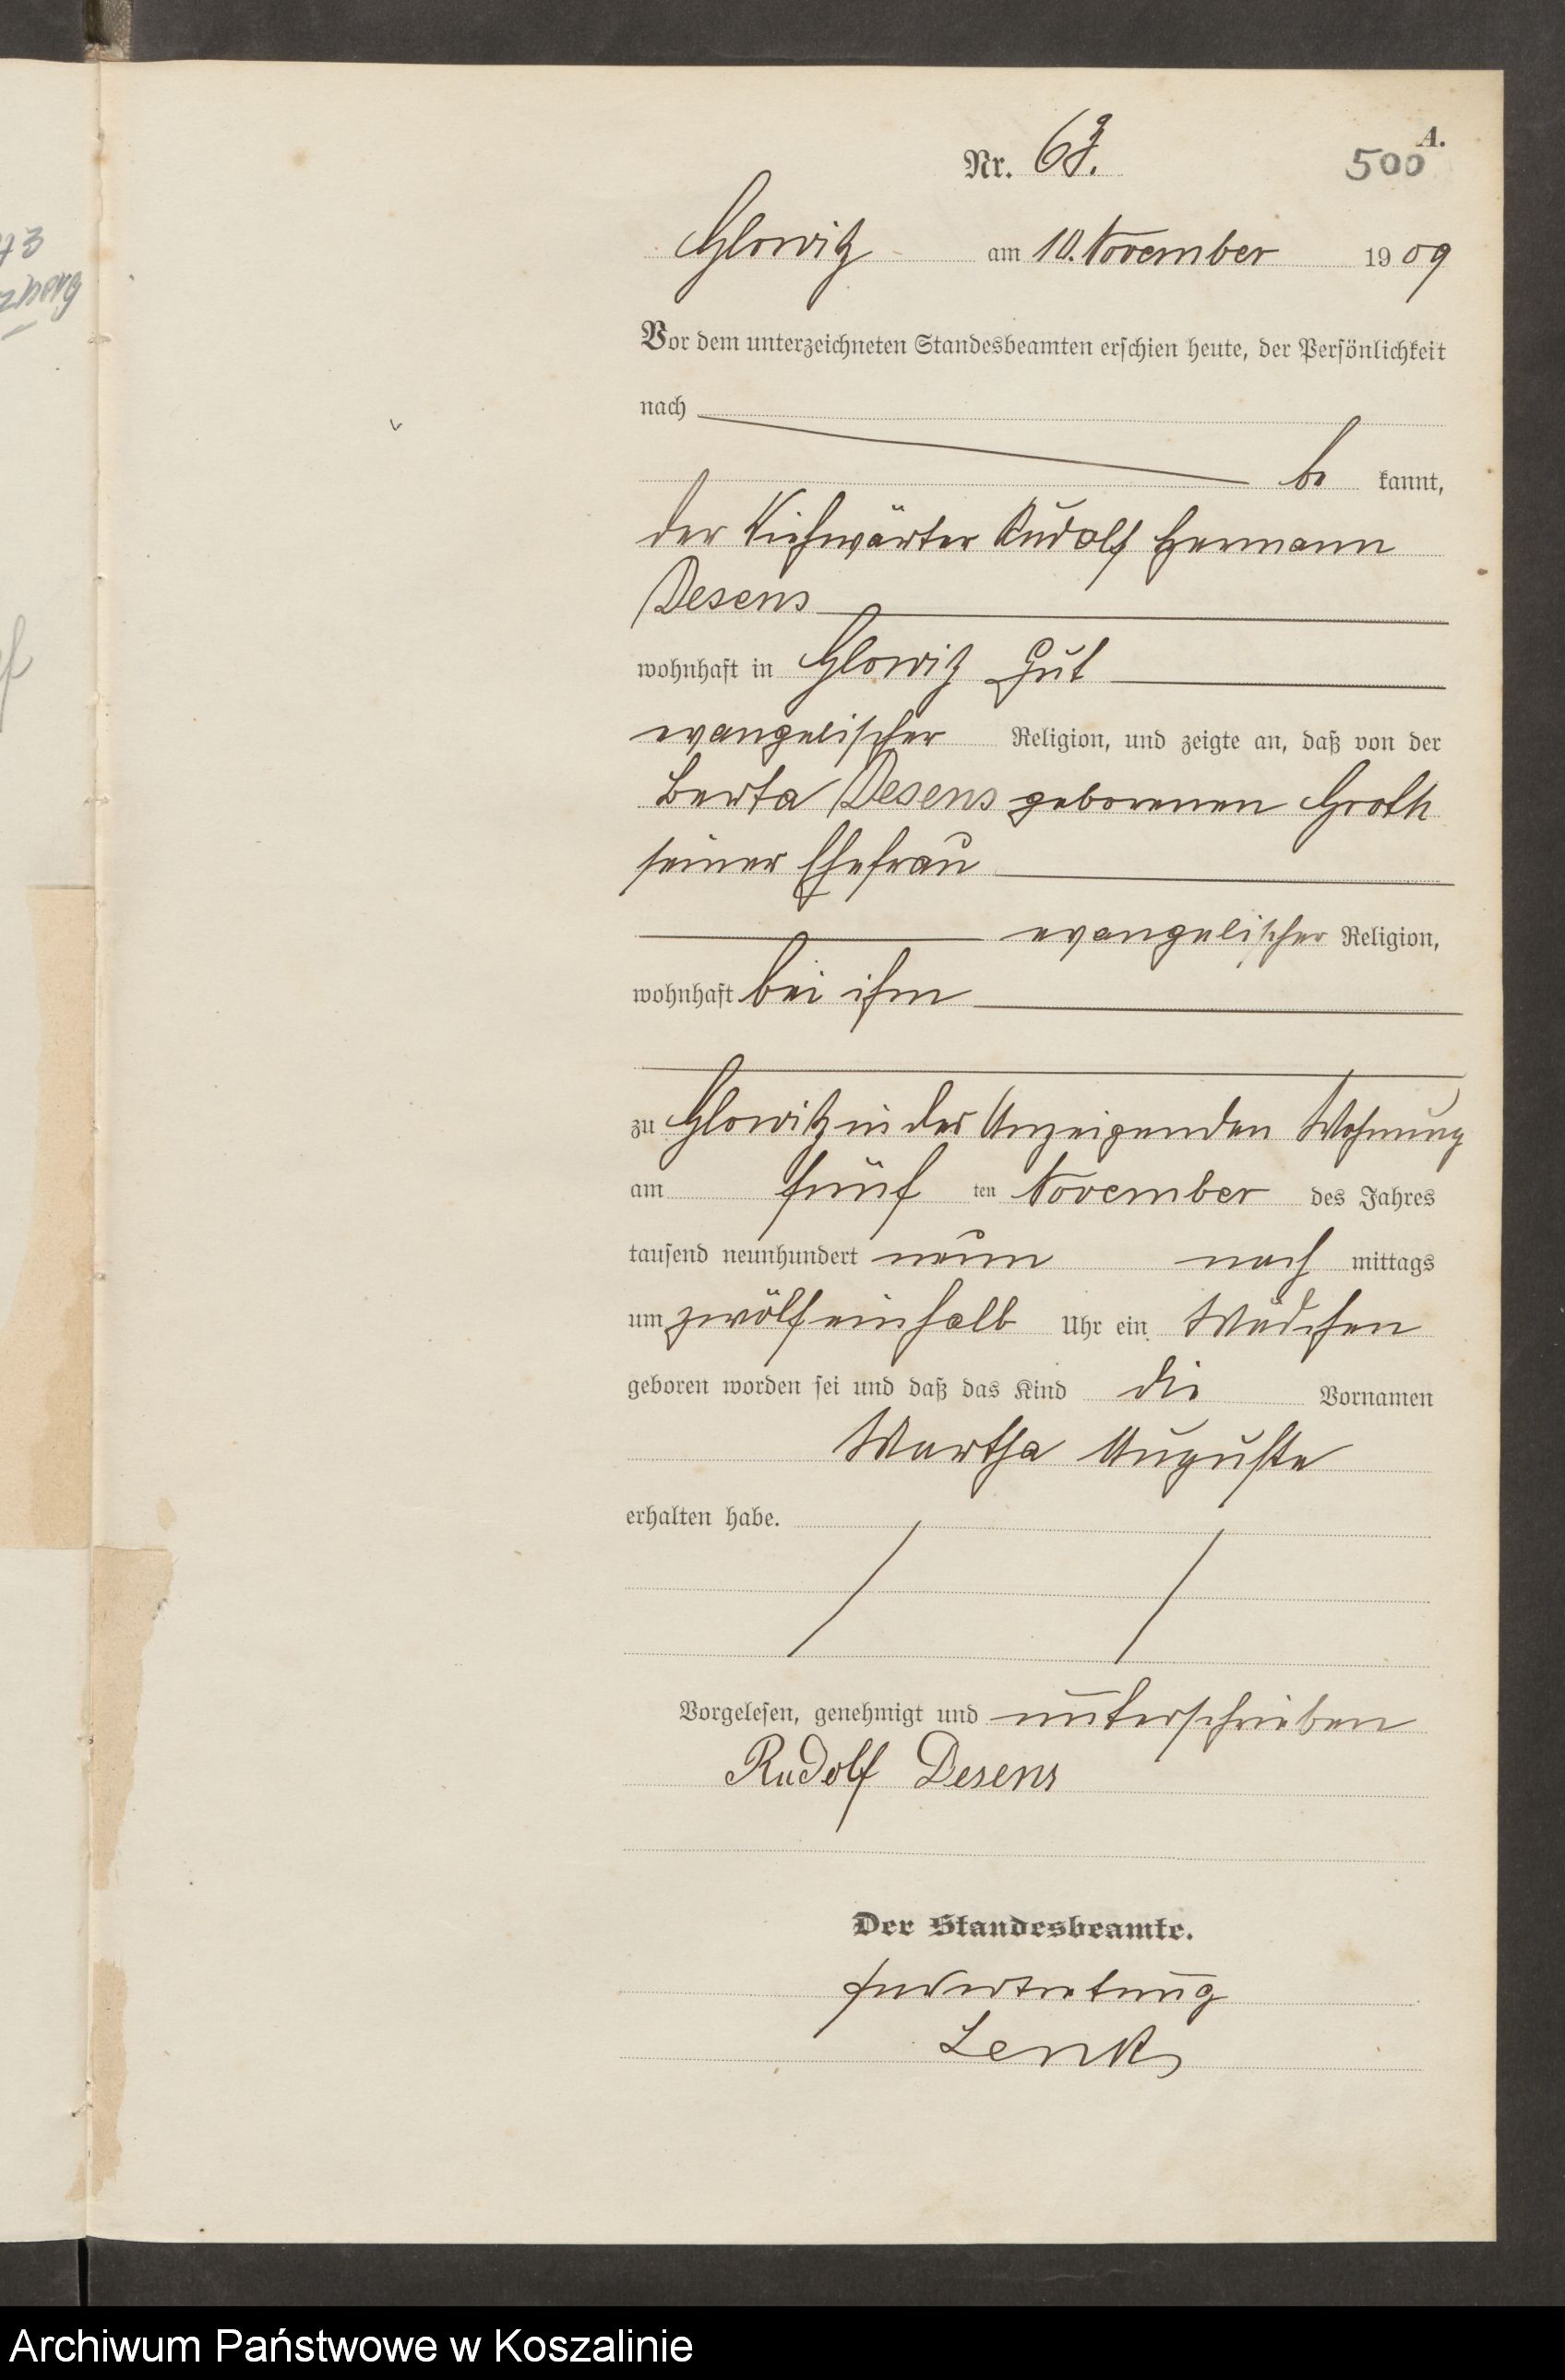 A.
Nr. 69.
500
Glowitz am 10. November 1909
Vor dem unterzeichneten Standesbeamten erschien heute, der Persönlichkeit
nach
be kannt,
der Viehwärter Rudolf Hermann
Desens
wohnhaft in Glowitz Gut
evangelischer Religion, und zeigte an, daß von der
Berta Desens geborenen Groth
seiner Ehefrau
evangelischer Religion,
wohnhaft bei ihm
zu Glowitz in des Anzeigenden Wohnung
am fünf ten November des Jahres
tausend neunhundert neun nach mittags
um zwölfeinhalb Uhr ein Mädchen
geboren worden sei und daß das Kind die Vornamen
Martha Auguste
erhalten habe.
Vorgelesen, genehmigt und unterschrieben
Rudolf Desens
Der Standesbeamte.
In Vertretung
Lenk
Archiwum Państwowe w Koszalinie